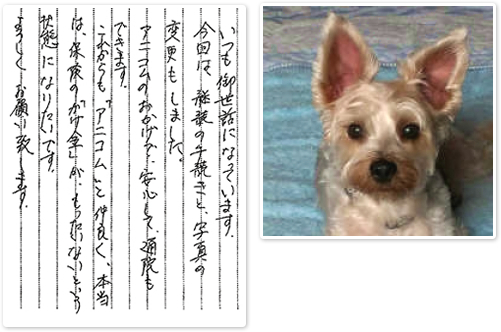 いつも御世話になっています。
今回は、継続の手続きと、写真の
変更もしました。
アニコムのおかげで、安心して、通院も
できます。
これからも「アニコム」と仲良く、本当
は、保険のかけ金が、もったいないという
状態になりたいです。
よろしくお願い致します。